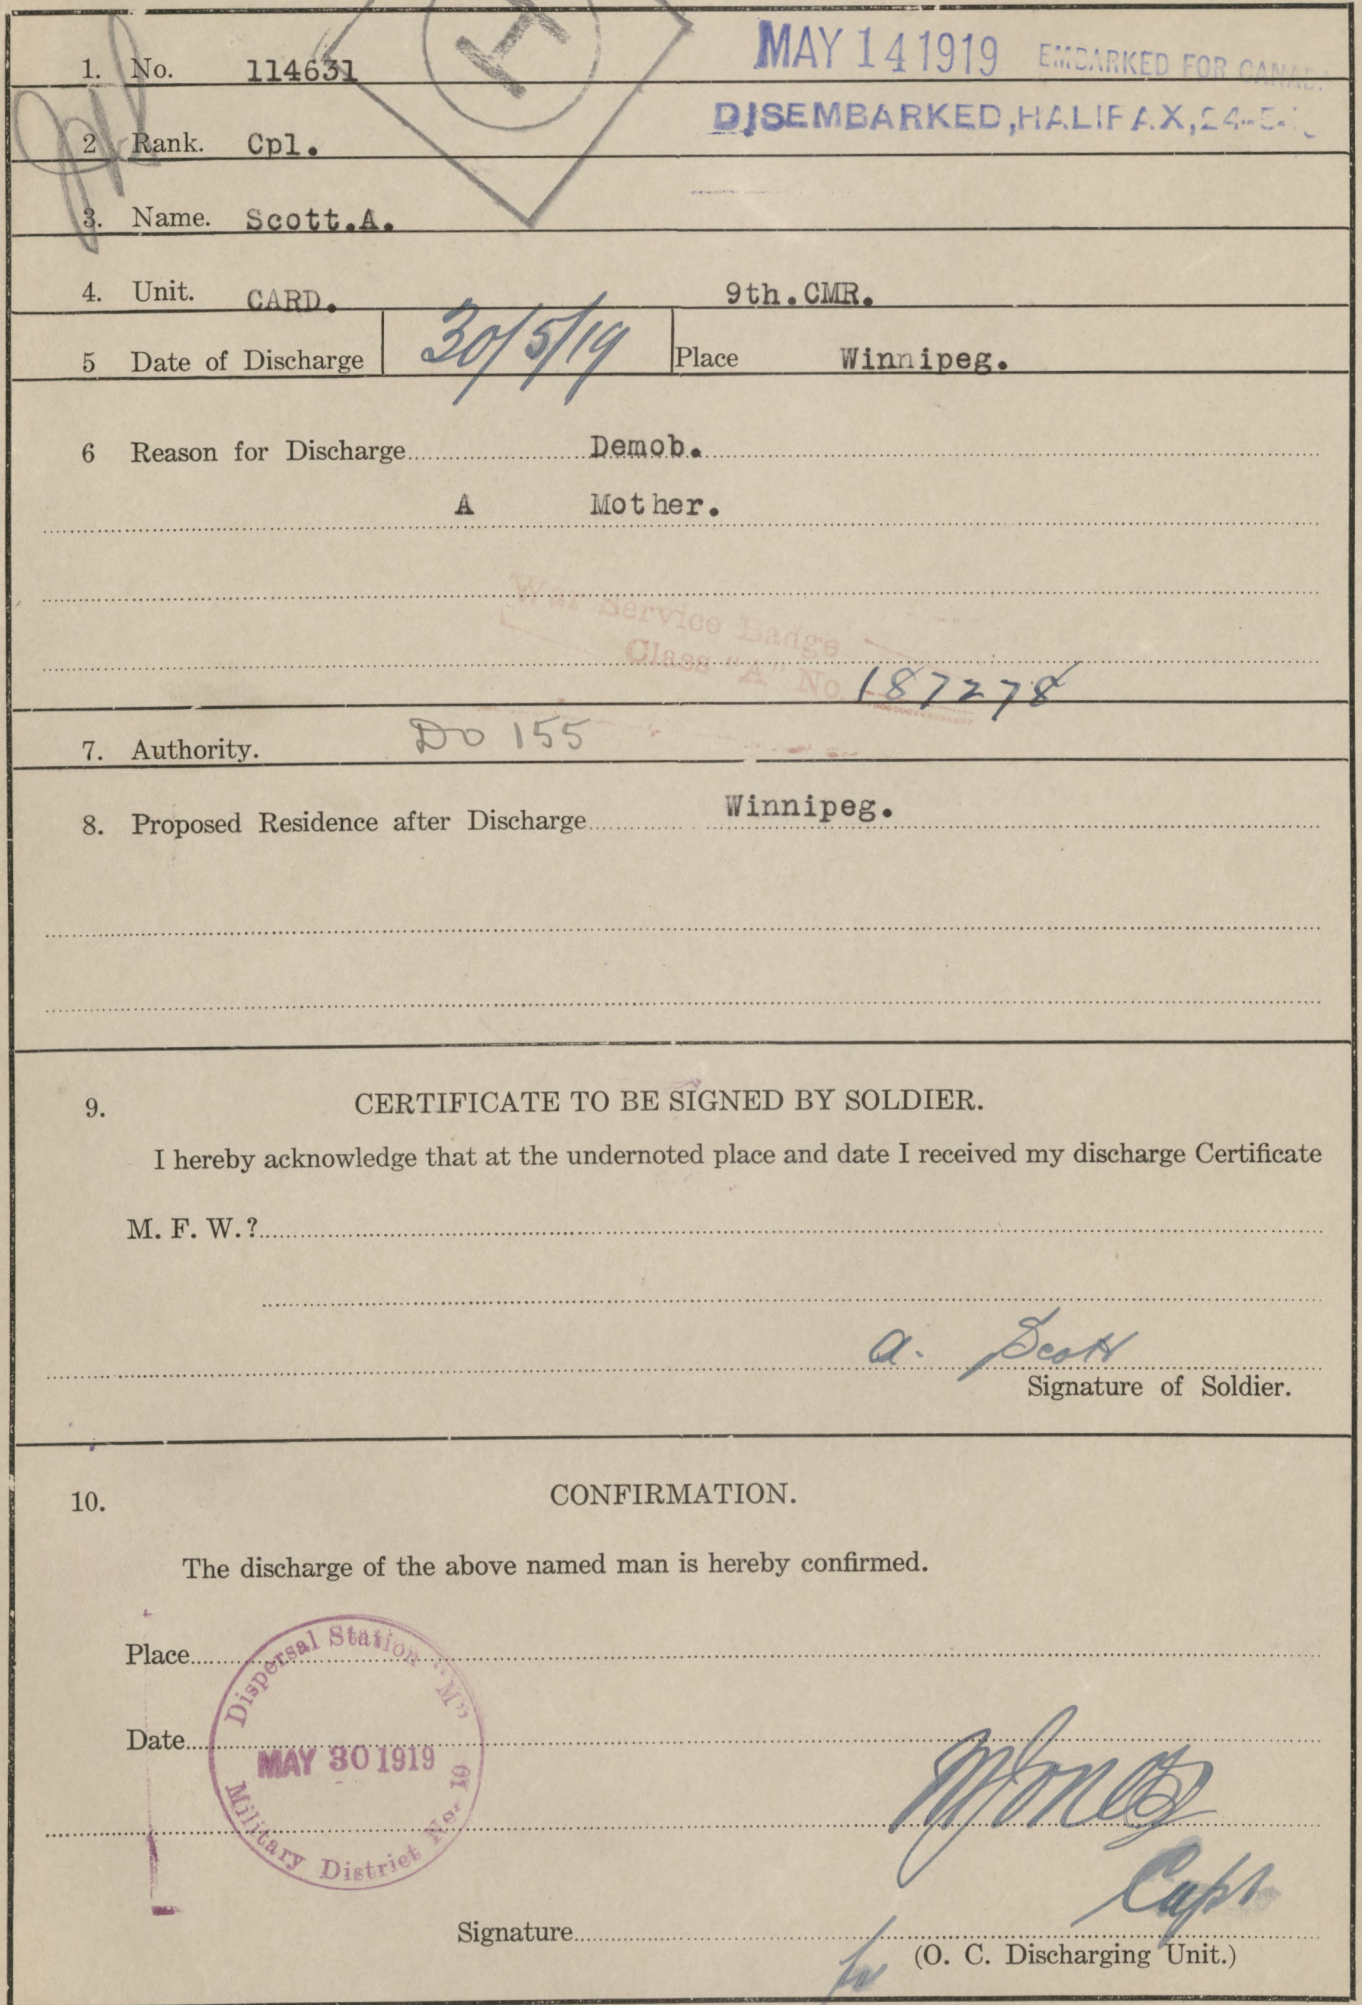 H
MAY 14 1919 EMBARKED FOR CANADA
1. No. 114631
DISEMBARKED, HALIFAX, 24-5-
2 Rank. Cpl.
3. Name. Scott.A.
4. Unit. CARD. 9th.CMR.
5 Date of Discharge 30/5/19 Place Winnipeg.
6 Reason for Discharge Demob.
A Mother.
War Service Badge
Class "A" No. 187278
7. Authority. DO 155
8. Proposed Residence after Discharge Winnipeg.
9. CERTIFICATE TO BE SIGNED BY SOLDIER.
I hereby acknowledge that at the undernoted place and date I received my discharge Certificate
M. F. W. ?
a. Scott
Signature of Soldier.
10. CONFIRMATION.
The discharge of the above named man is hereby confirmed.
Place
Dispersal Station "M"
Date
MAY 30 1919
Military District No. 10
Jones
Capt
Signature
for (O. C. Discharging Unit.)